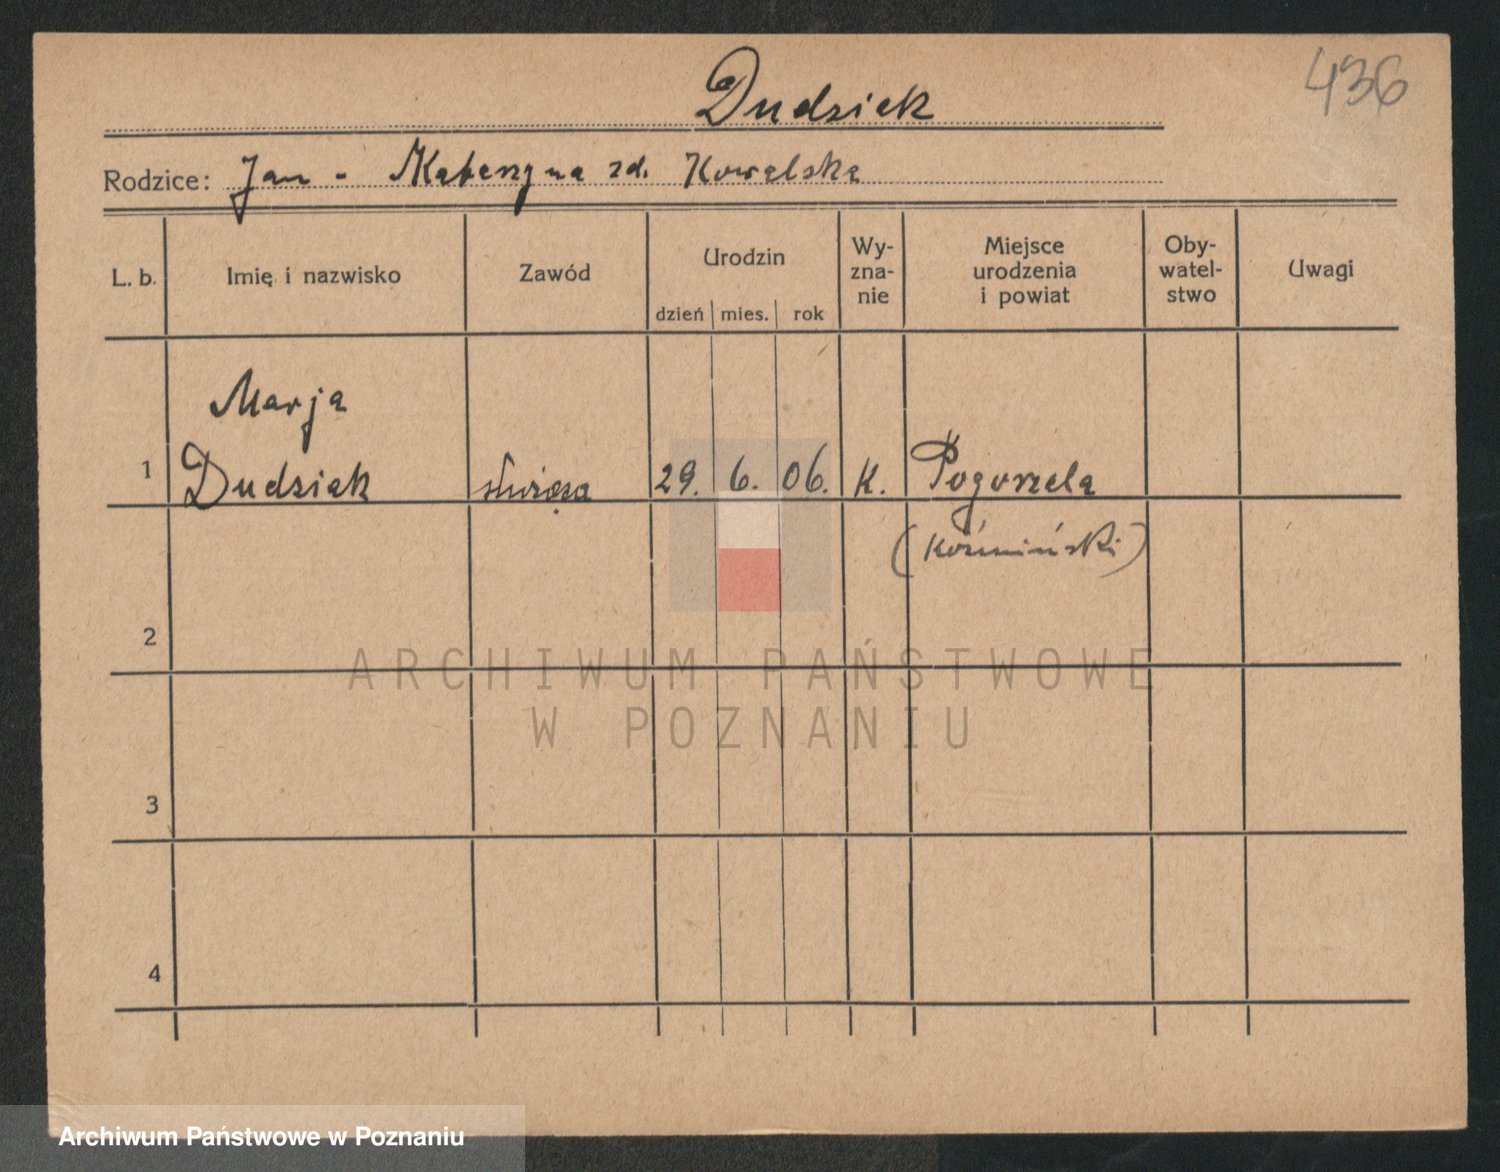 436
Dudziak
Rodzice: Jan - Katarzyna zd. Kowalska
L. b.
Imię i nazwisko
Zawód
Urodzin
dzień mies. rok
Wy-
zna-
nie
Miejsce
urodzenia
i powiat
Oby-
watel-
stwo
Uwagi
Marja
1 Dudziak służąca 29. 6. 06. K. Pogorzela
(Koźmiński)
2
ARCHIWUM PAŃSTWOWE
W POZNANIU
3
4
Archiwum Państwowe w Poznaniu